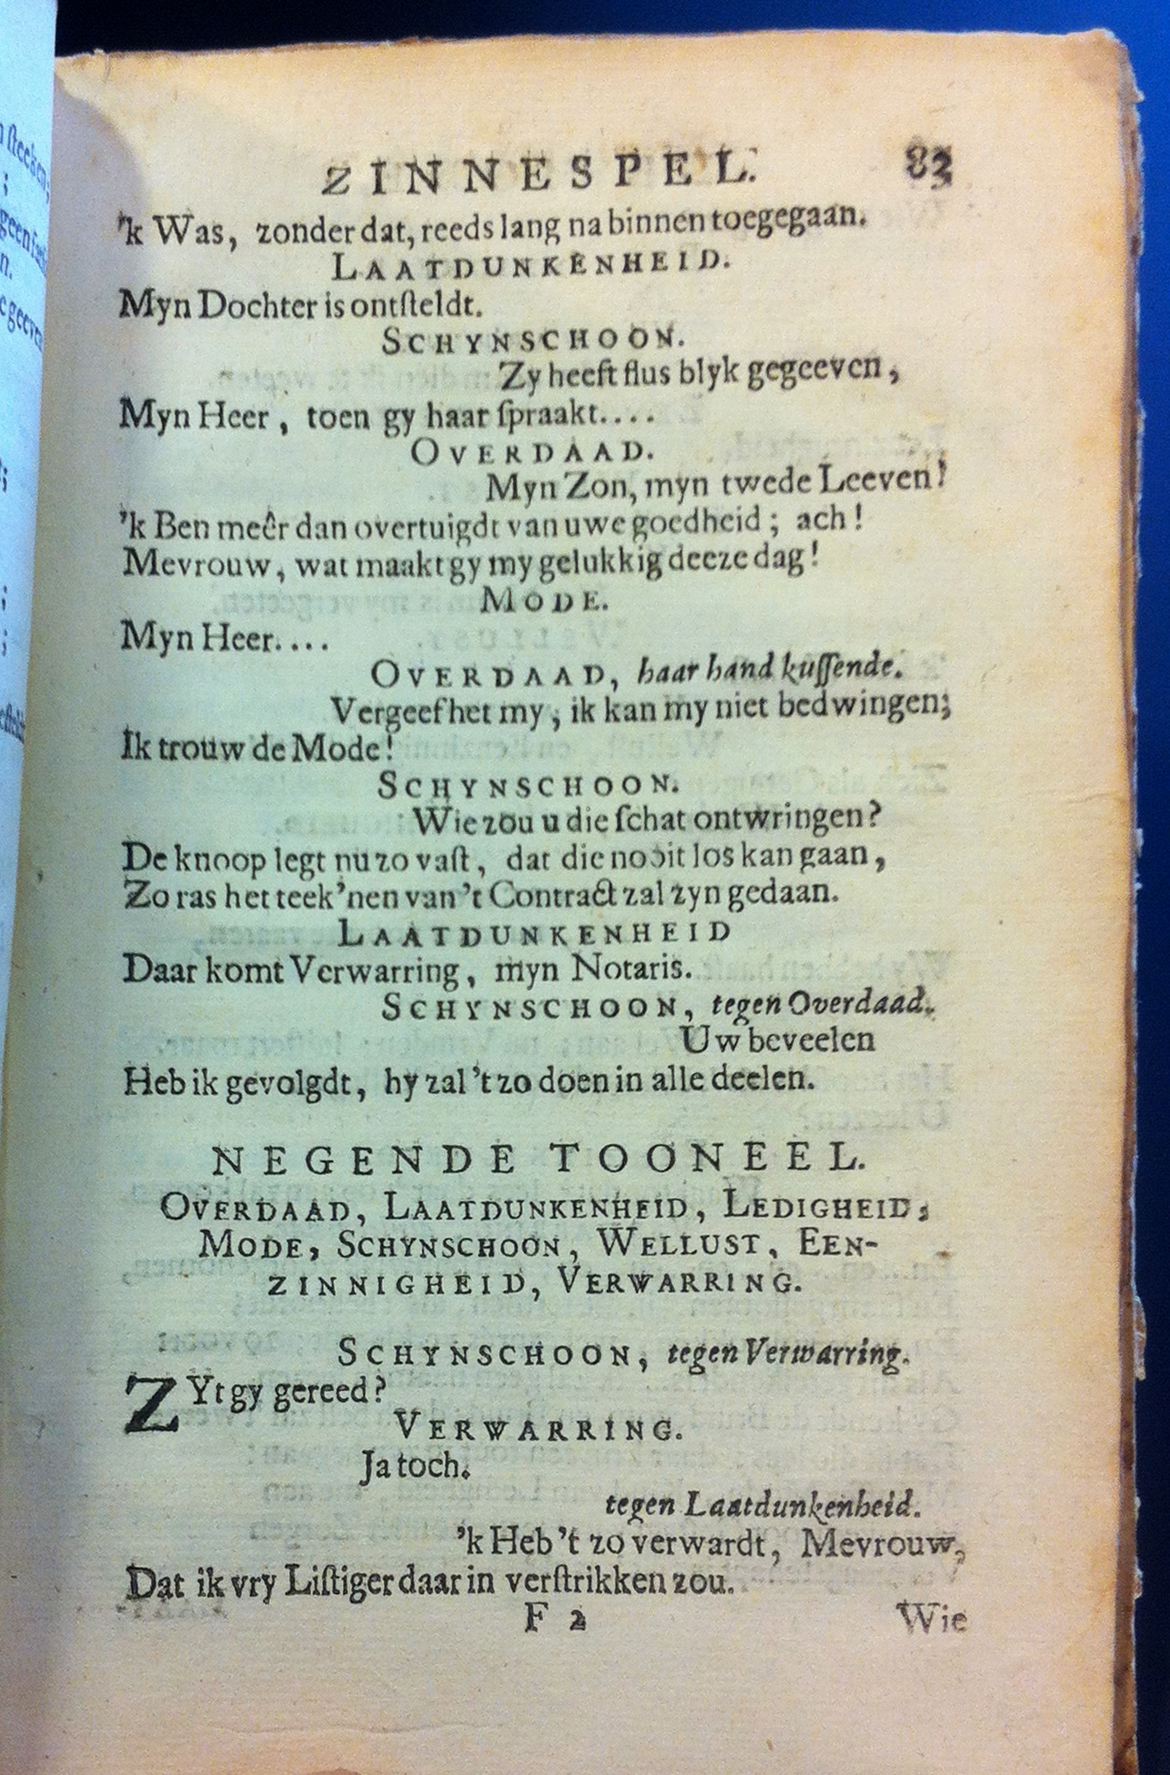 ZINNESPEL. 83
'k Was, zonder dat, reeds lang na binnen toegegaan.
LAATDUNKENHEID.
Myn Dochter is ontſteldt.
SCHYNSCHOON.
Zy heeft flus blyk gegeeven,
Myn Heer, toen gy haar ſpraakt....
OVERDAAD.
Myn Zon, myn twede Leeven!
'k Ben meêr dan overtuigdt van uwe goedheid; ach!
Mevrouw, wat maakt gy my gelukkig deeze dag!
MODE.
Myn Heer....
OVERDAAD, haar hand kuſſende.
Vergeef het my, ik kan my niet bedwingen;
Ik trouw de Mode!
SCHYNSCHOON.
Wie zou u die ſchat ontwringen?
De knoop legt nu zo vaſt, dat die nooit los kan gaan,
Zo ras het teek'nen van 't Contract zal zyn gedaan.
LAATDUNKENHEID
Daar komt Verwarring, myn Notaris.
SCHYNSCHOON, tegen Overdaad.
Uw beveelen
Heb ik gevolgdt, hy zal 't zo doen in alle deelen.
NEGENDE TOONEEL.
OVERDAAD, LAATDUNKENHEID, LEDIGHEID,
MODE, SCHYNSCHOON, WELLUST, EEN-
ZINNIGHEID, VERWARRING.
SCHYNSCHOON, tegen Verwarring.
ZYt gy gereed?
VERWARRING.
Ja toch.
tegen Laatdunkenheid.
'k Heb 't zo verwardt, Mevrouw,
Dat ik vry Liſtiger daar in verſtrikken zou.
F 2 Wie